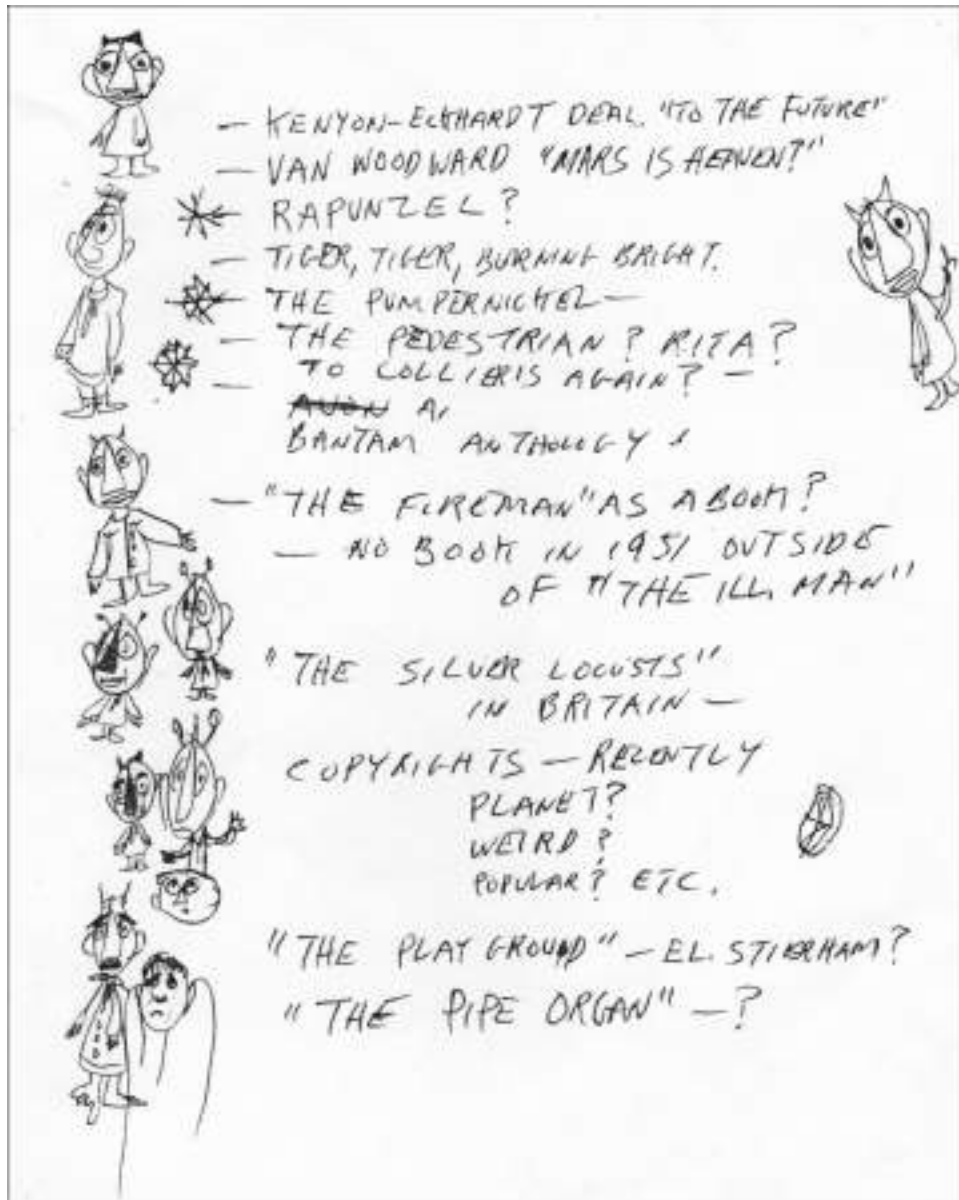 — KENYON-ECKHARDT DEAL. "TO THE FUTURE"
— VAN WOODWARD "MARS IS HEAVEN?"
— RAPUNZEL?
— TIGER, TIGER, BURNING BRIGHT.
— THE PUMPERNICKEL —
— THE PEDESTRIAN? RITA?
— TO COLLIERIS AGAIN? —
AVON A
BANTAM ANTHOLOGY
— "THE FIREMAN" AS A BOOK?
— NO BOOK IN 1951 OUTSIDE
OF "THE ILL. MAN"
"THE SILVER LOCUSTS"
IN BRITAIN —
COPYRIGHTS — RECENTLY
PLANET?
WEIRD?
POPULAR? ETC.
"THE PLAYGROUND" — EL. STIERHAM?
"THE PIPE ORGAN" — ?